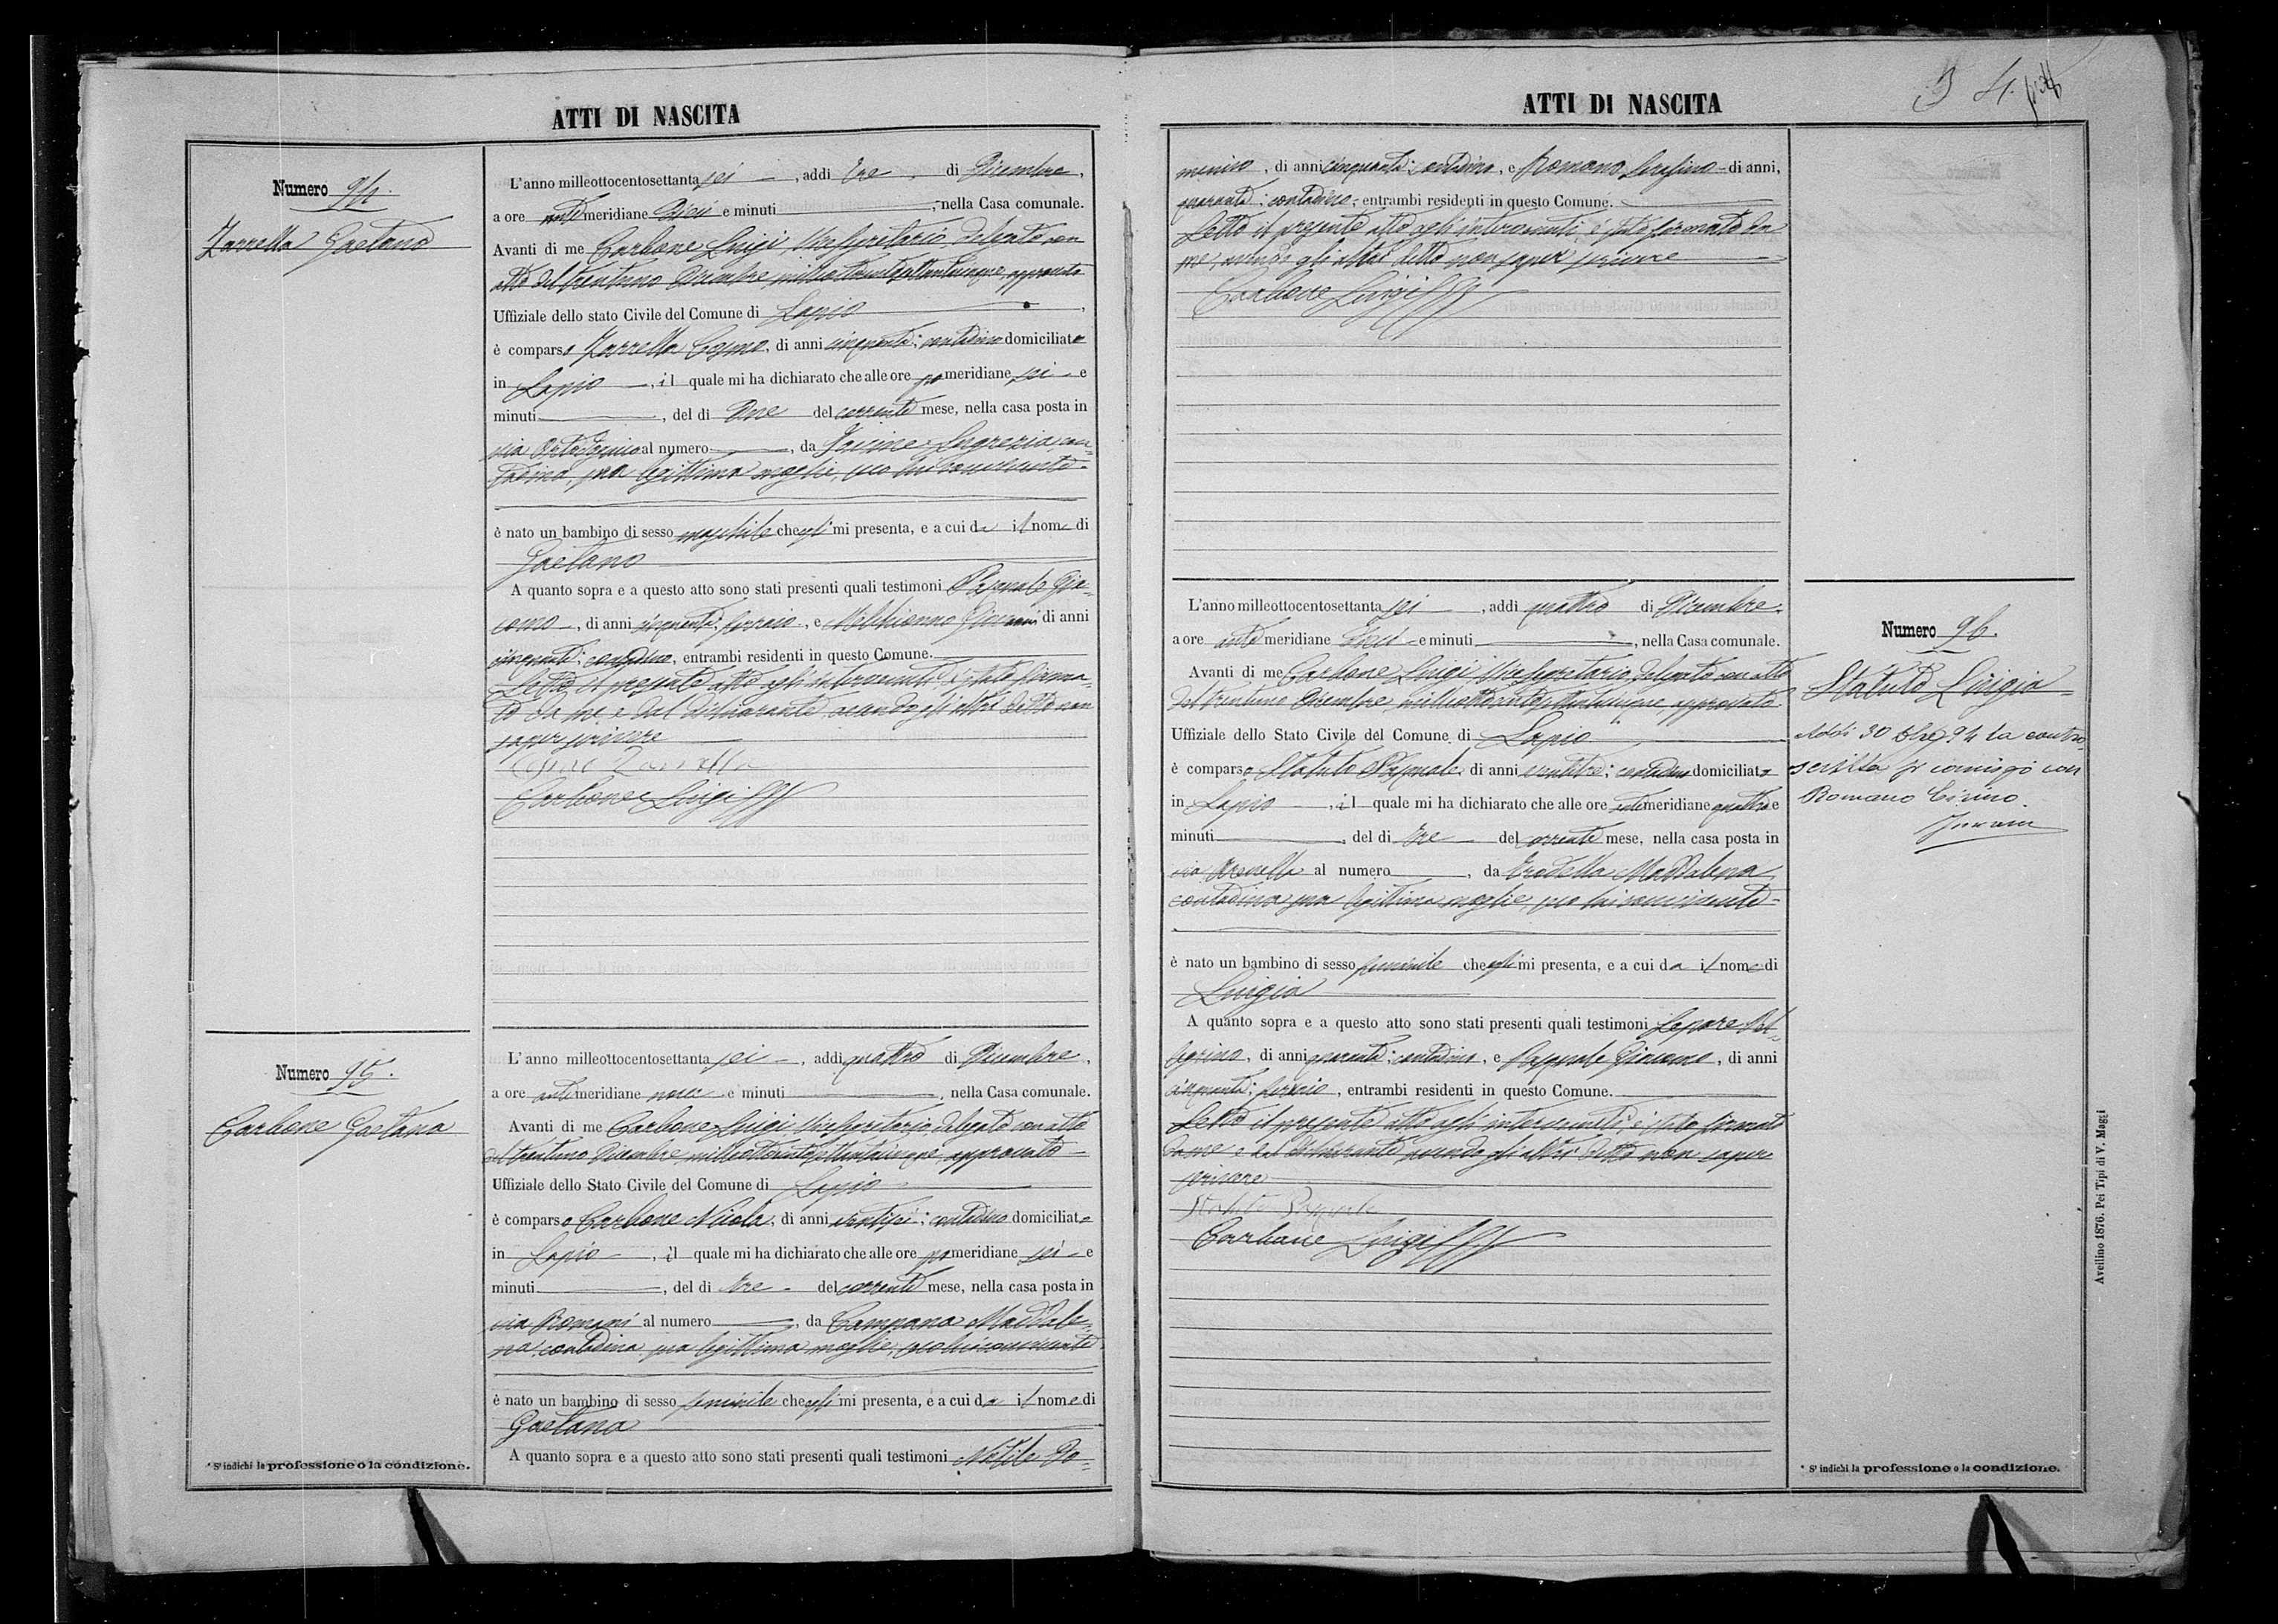 ATTI DI NASCITA
Numero 94.
Zarrella Gaetano
L'anno milleottocentosettanta sei, addi tre di Dicembre,
a ore antimeridiane dieci e minuti, nella Casa comunale.
Avanti di me Carbone Luigi, Vicesegretario, delegato con
atto del trentuno Dicembre milleottocentosettantacinque, approvato
Uffiziale dello stato Civile del Comune di Lapio,
è comparso Zarrella Cosmo, di anni cinquanta; contadino domiciliato
in Lapio, il quale mi ha dichiarato che alle ore pomeridiane sei e
minuti, del di due del corrente mese, nella casa posta in
via al numero, da Lugrezia con-
tadina, sua legittima moglie, seco lui convivente
è nato un bambino di sesso maschile che egli mi presenta, e a cui da il nome di
Gaetano
A quanto sopra e a questo atto sono stati presenti quali testimoni Pasquale Gia-
como, di anni cinquanta; ferraio, e Melchionno Giovanni di anni
cinquanta; contadino, entrambi residenti in questo Comune.
Letto il presente atto agli intervenuti è stato firma-
to da me e dal dichiarante avendo gli altri detto non
saper scrivere
Cosmo Zarrella
Carbone Luigi
Numero 95.
Carbone Gaetana
L'anno milleottocentosettanta sei, addi quattro di Dicembre,
a ore antimeridiane nove e minuti, nella Casa comunale.
Avanti di me Carbone Luigi Vicesegretario delegato con atto
del trentuno Dicembre milleottocentosettantacinque, approvato
Uffiziale dello Stato Civile del Comune di Lapio
è comparso Carbone Nicola, di anni ventisei; contadino domiciliato
in Lapio, il quale mi ha dichiarato che alle ore pomeridiane sei e
minuti, del di tre del corrente mese, nella casa posta in
via Romani al numero, da Campana Maddale-
na contadina sua legittima moglie, seco lui convivente
è nato un bambino di sesso feminile che egli mi presenta, e a cui da il nome di
Gaetana
A quanto sopra e a questo atto sono stati presenti quali testimoni Do-
* Si indichi la professione o la condizione.
ATTI DI NASCITA
34.
menico, di anni cinquanta; contadino, e Romano Serafino di anni,
quaranta; contadino, entrambi residenti in questo Comune.
Letto il presente atto agli intervenuti è stato firmato da
me, avendo gli altri detto non saper scrivere
Carbone Luigi
L'anno milleottocentosettanta sei, addi quattro di Dicembre
a ore antimeridiane dieci e minuti, nella Casa comunale.
Avanti di me Carbone Luigi Vicesegretario, delegato con atto
del trentuno Dicembre milleottocentosettantacinque, approvato
Uffiziale dello Stato Civile del Comune di Lapio
è comparso Statuto Pasquale, di anni ventitre; contadino domiciliato
in Lapio, il quale mi ha dichiarato che alle ore antimeridiane quattro e
minuti, del di tre del corrente mese, nella casa posta in
via Arenella al numero, da Trodella Maddalena
contadina sua legittima moglie, seco lui convivente
è nato un bambino di sesso feminile che egli mi presenta, e a cui da il nome di
Luigia
A quanto sopra e a questo atto sono stati presenti quali testimoni Lepore Pel-
legrino, di anni quaranta; contadino, e Pasquale Giacomo, di anni
cinquanta; ferraio, entrambi residenti in questo Comune.
Letto il presente atto agli intervenuti è stato firmato
da me e dal dichiarante avendo gli altri detto non sapere
scrivere
Statuto Pasquale
Carbone Luigi
Numero 96.
Statuto Luigia
Addi 30 94 la contro-
scritta si coniugò con
Romano Cirino.
* Si indichi la professione o la condizione.
Avellino 1876. Pei Tipi di V. Maggi